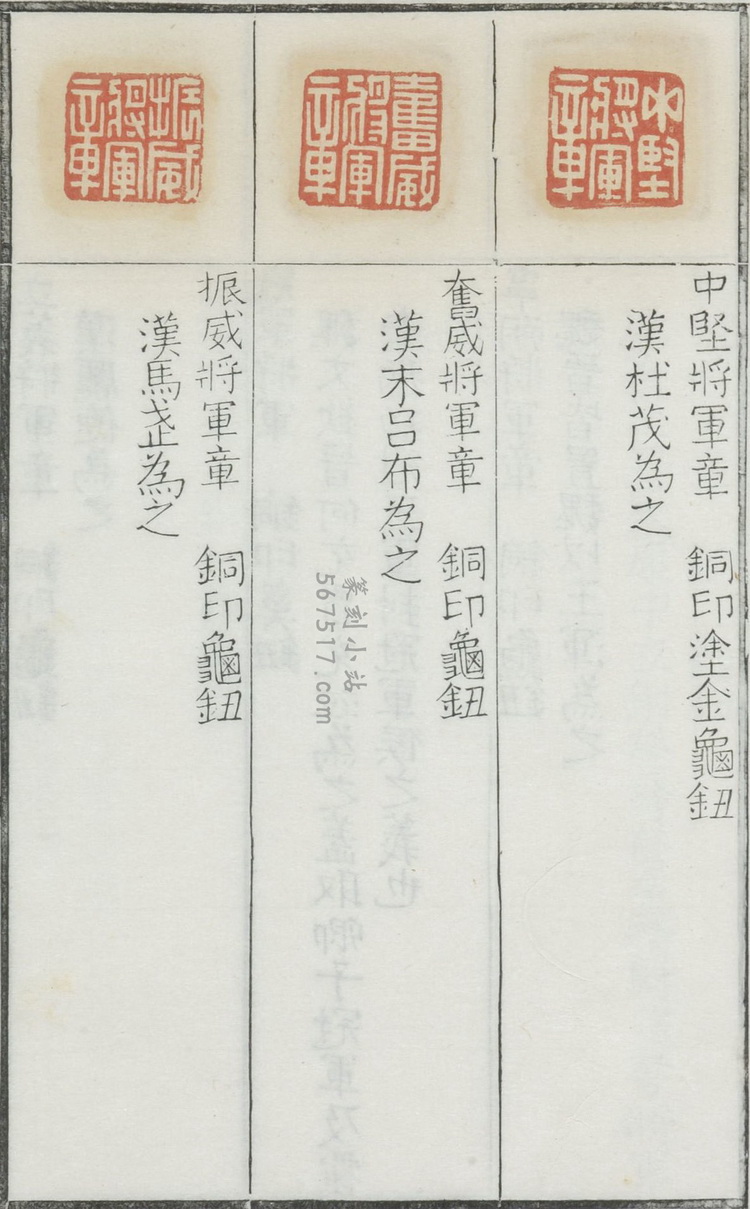 中堅將軍章
中堅將軍章 銅印塗金龜鈕
漢杜茂為之
奮威將軍章
奮威將軍章 銅印龜鈕
漢末呂布為之
振威將軍章
振威將軍章 銅印龜鈕
漢馬
為之
篆刻小站
567517.com